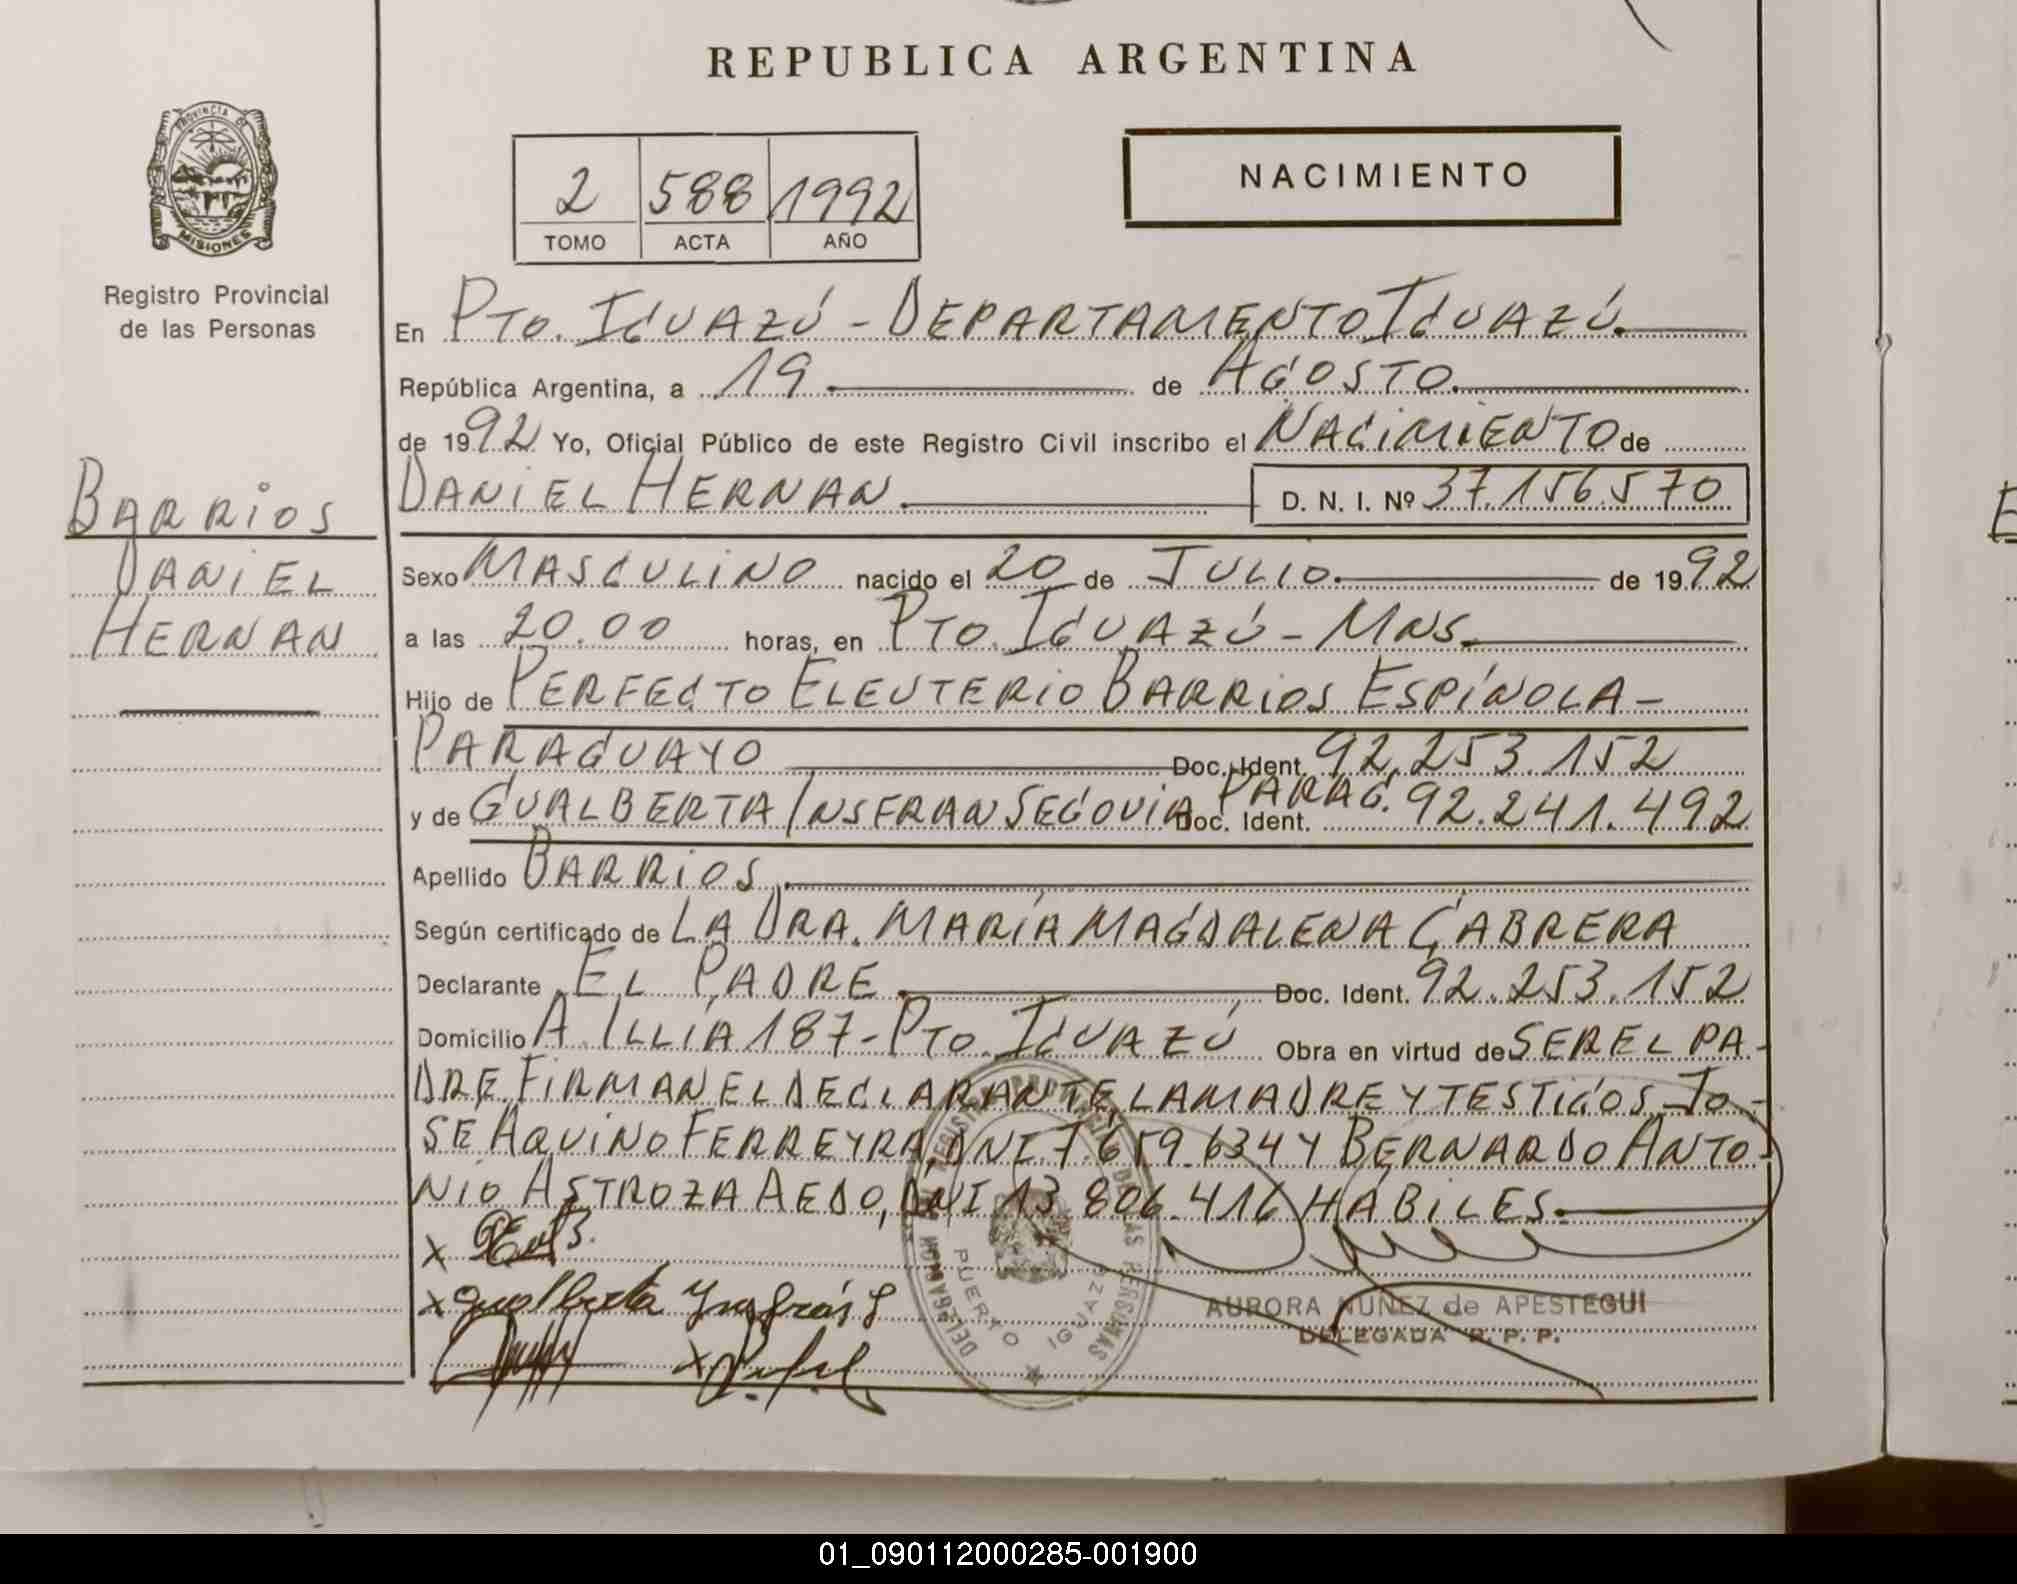 REPUBLICA ARGENTINA
PROVINCIA DE
MISIONES
Registro Provincial
de las Personas
2 588 1992
TOMO ACTA AÑO
NACIMIENTO
BARRIOS
DANIEL
HERNAN
En PTO. IGUAZÚ - DEPARTAMENTO IGUAZÚ.
República Argentina, a 19 de AGOSTO
de 1992 Yo, Oficial Público de este Registro Civil inscribo el NACIMIENTO de
DANIEL HERNAN. D. N. I. Nº 37.156.570
Sexo MASCULINO nacido el 20 de JULIO. de 1992
a las 20.00 horas, en PTO. IGUAZÚ - MNS.
Hijo de PERFECTO ELEUTERIO BARRIOS ESPÍNOLA -
PARAGUAYO Doc. Ident. 92.253.152
y de GUALBERTA INSFRAN SEGOVIA PARAG. Doc. Ident. 92.241.492
Apellido BARRIOS.
Según certificado de LA DRA. MARÍA MAGDALENA CABRERA
Declarante EL PADRE. Doc. Ident. 92.253.152
Domicilio A. ILLÍA 187 - PTO. IGUAZÚ Obra en virtud de SER EL PA-
DRE. FIRMAN EL DECLARANTE, LA MADRE Y TESTIGOS JO-
SE AQUINO FERREYRA, DNI 7.659.634 Y BERNARDO ANTO
NIO ASTROZA AEDO, DNI 13.806.416 HÁBILES.
x
x Gualberta Ynsfrán S
x
REGISTRO PROVINCIAL DE LAS PERSONAS
DELEGACION
PUERTO IGUAZU
AURORA NUÑEZ de APESTEGUI
DELEGADA R. P. P.
01_090112000285-001900